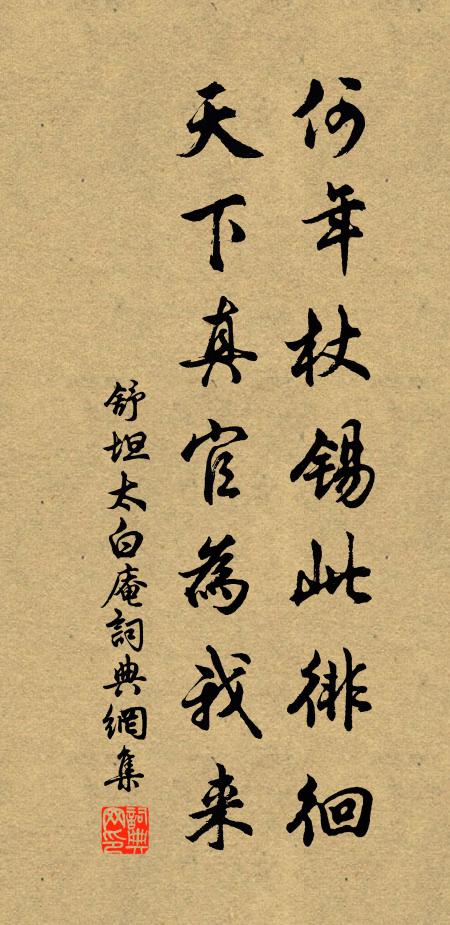 何年杖锡此徘徊
天下真官為我来
舒坦太白庵詞典網集
詞典网印